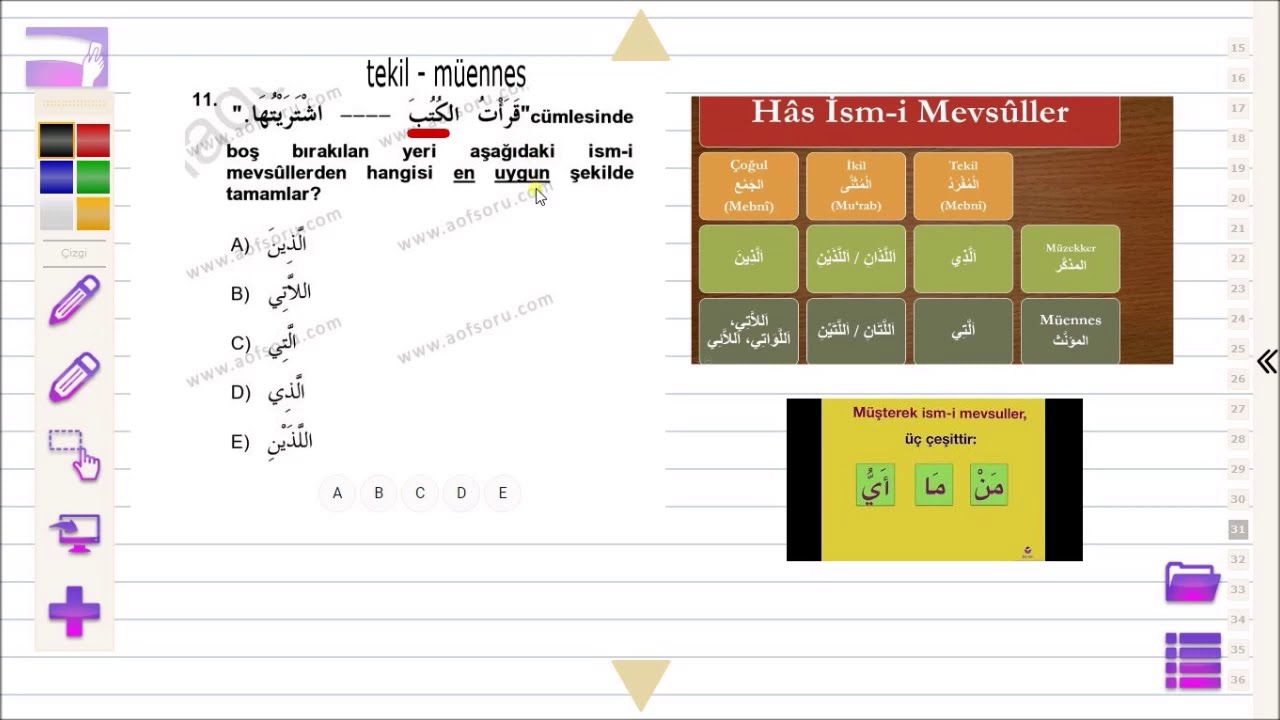 tekil - müennes
11. "قَرَأْتُ الْكُتُبَ ---- اشْتَرَيْتُهَا." cümlesinde
boş bırakılan yeri aşağıdaki ism-i
mevsûllerden hangisi en uygun şekilde
tamamlar?
A) الَّذِينَ
B) اللاَّتِي
C) الَّتِي
D) الَّذِي
E) اللَّذَيْنِ
A B C D E
www.aofsoru.com
www.aofsoru.com
www.aofsoru.com
www.aofsoru.com
www.aofsoru.com
Çizgi
Hâs İsm-i Mevsûller
Çoğul
الجَمْع
(Mebnî)
İkil
الْمُثَنَّى
(Mu'rab)
Tekil
الْمُفْرَدُ
(Mebnî)
الَّذِينَ
اللَّذَانِ / اللَّذَيْنِ
الَّذِي
Müzekker
المذكَّر
اَللاَّتِي،
اَللَّوَاتِي، اَللاَّئِي
اللَّتَانِ / اللَّتَيْنِ
اَلَّتِي
Müennes
المؤنَّث
Müşterek ism-i mevsuller,
üç çeşittir:
أَيُّ مَا مَنْ
15
16
17
18
19
20
21
22
23
24
25
26
27
28
29
30
31
32
33
34
35
36